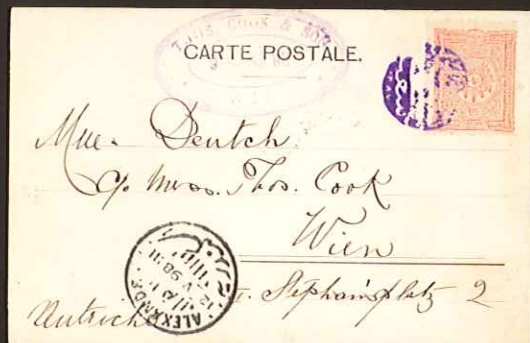 THOS. COOK & SON
CARTE POSTALE.
Mlle. Deutch
c/o Mess. Thos. Cook
Wien
I. Stephansplatz 2
Autriche
ALEXANDR
12 V 98